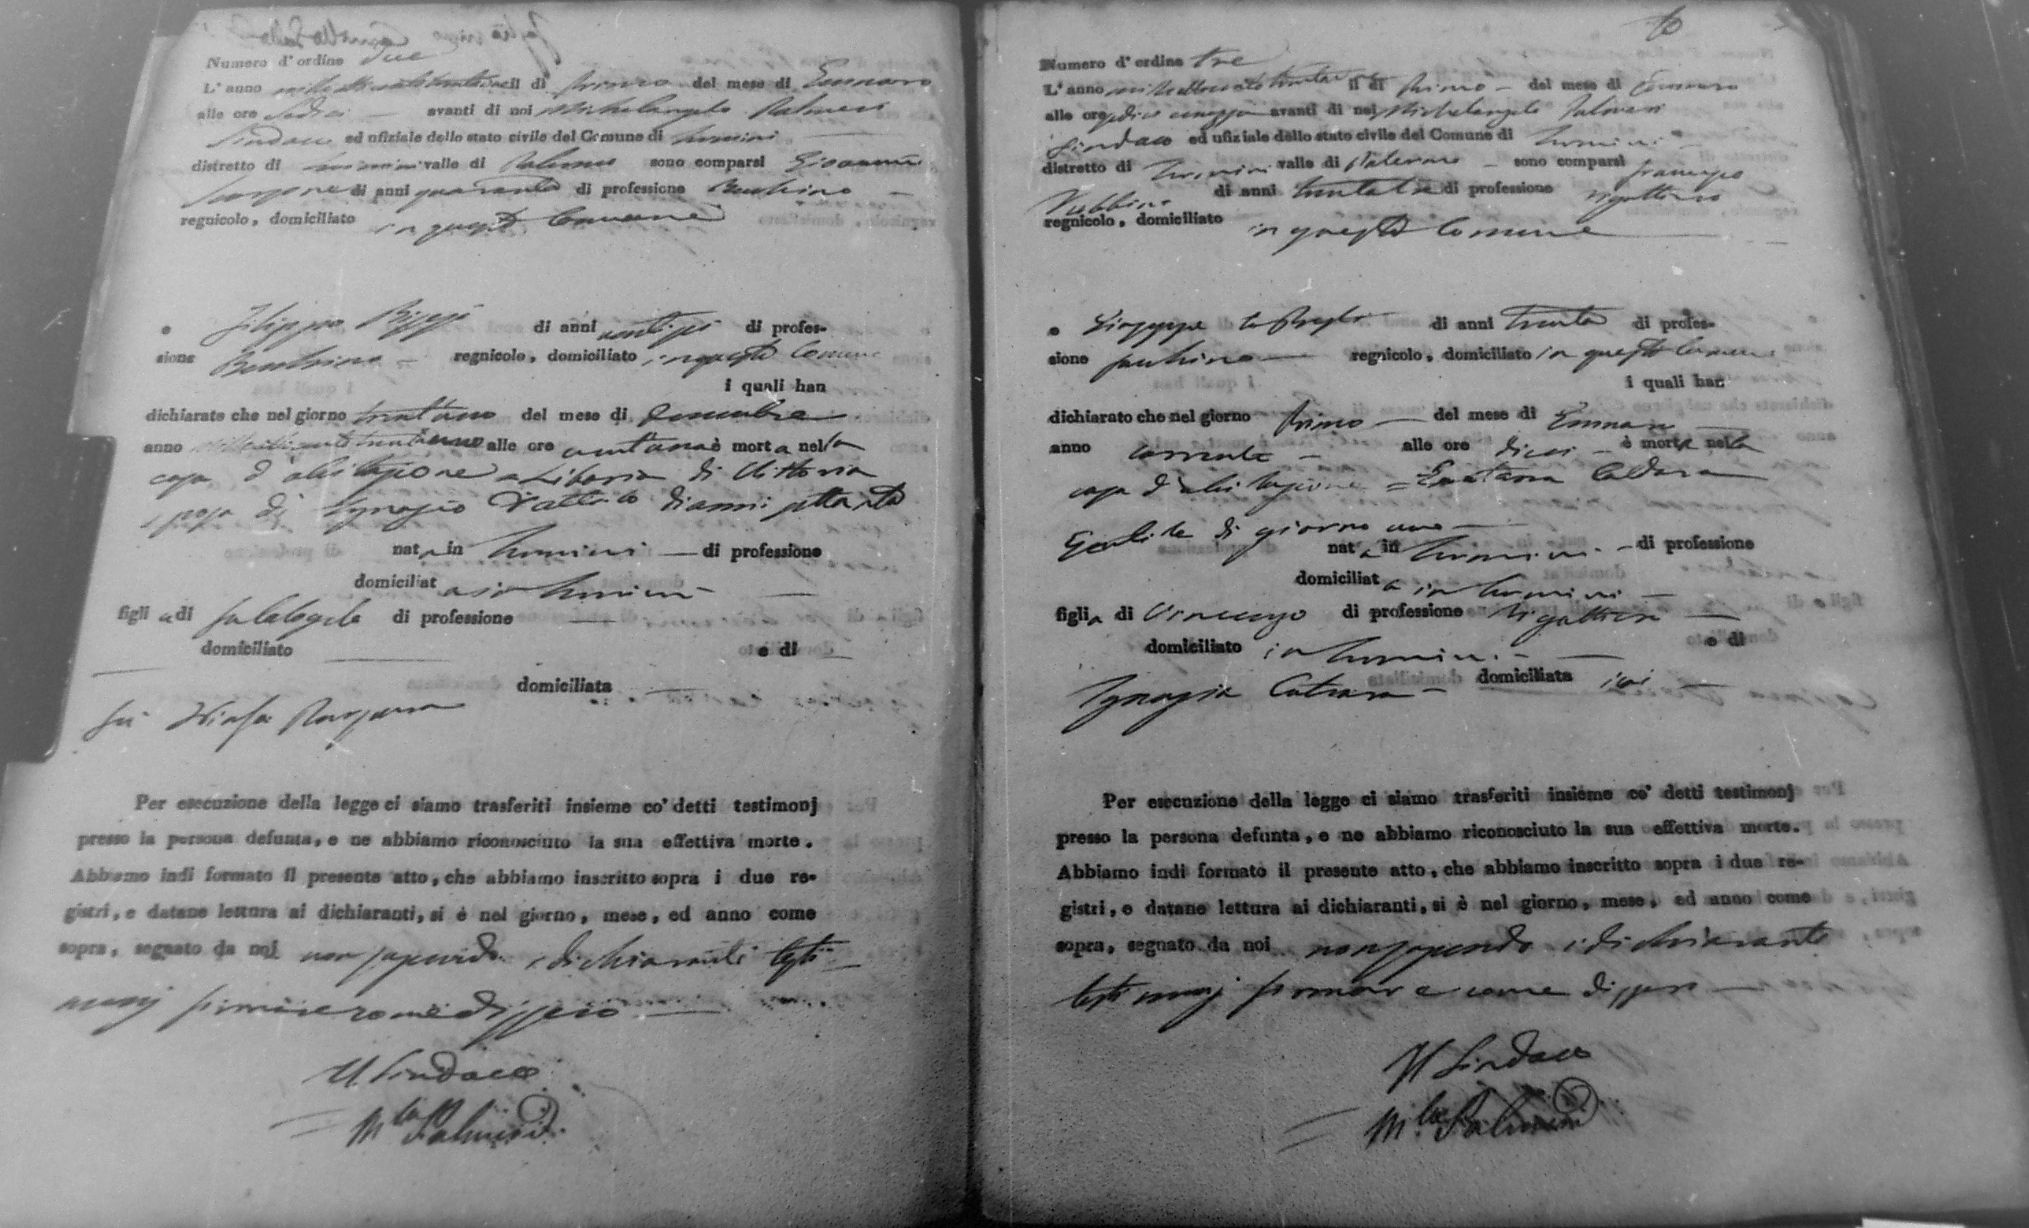 Numero d' ordine due
L' anno mille ottocento trentadue il di primo del mese di Gennaro
alle ore sedici avanti di noi Michelangelo Palmeri
Sindaco ed ufiziale dello stato civile del Comune di Termini
distretto di Termini valle di Palermo sono comparsi Giovanni
di anni quaranta di professione Becchino
regnicolo, domiciliato in questo Comune
e Filippo di anni di profes-
sione Becchino regnicolo, domiciliato in questo Comune
i quali han
dichiarato che nel giorno trentuno del mese di Decembre
anno mille ottocento trentuno alle ore è morta nella
casa d'abitazione Liboria di Vittoria
sposa di Ignazio di anni settanta
nata in Termini di professione
domiciliata in Termini
figlia di di professione
domiciliato e di
domiciliata
fù Ninfa
Per esecuzione della legge ci siamo trasferiti insieme co' detti testimonj
presso la persona defunta, e ne abbiamo riconosciuto la sua effettiva morte.
Abbiamo indi formato il presente atto, che abbiamo inscritto sopra i due re-
gistri, e datane lettura ai dichiaranti, si è nel giorno, mese, ed anno come
sopra, segnato da noi non sapendo i dichiaranti testi-
monj firmare come dissero
Il Sindaco
M.lo Palmeri
10
Numero d' ordine tre
L' anno mille ottocento trentadue il di Primo del mese di Gennaro
alle ore sedici e mezza avanti di noi Michelangelo Palmeri
Sindaco ed ufiziale dello stato civile del Comune di Termini
distretto di Termini valle di Palermo sono comparsi Francesco
di anni trentatre di professione rigattiero
regnicolo, domiciliato in questo Comune
e Giuseppe di anni trenta di profes-
sione regnicolo, domiciliato in questo Comune
i quali han
dichiarato che nel giorno Primo del mese di Gennaro
anno corrente alle ore dieci è morta nella
casa d'abitazione Gaetana Caldara
di giorno uno
nata in Termini di professione
domiciliata in Termini
figlia di Vincenzo di professione Rigattiere
domiciliato in Termini e di
Ignazia Catrara domiciliata ivi
Per esecuzione della legge ci siamo trasferiti insieme co' detti testimonj
presso la persona defunta, e ne abbiamo riconosciuto la sua effettiva morte.
Abbiamo indi formato il presente atto, che abbiamo inscritto sopra i due re-
gistri, e datane lettura ai dichiaranti, si è nel giorno, mese, ed anno come
sopra, segnato da noi non sapendo i dichiaranti
testimonj firmare come dissero
Il Sindaco
M.lo Palmeri